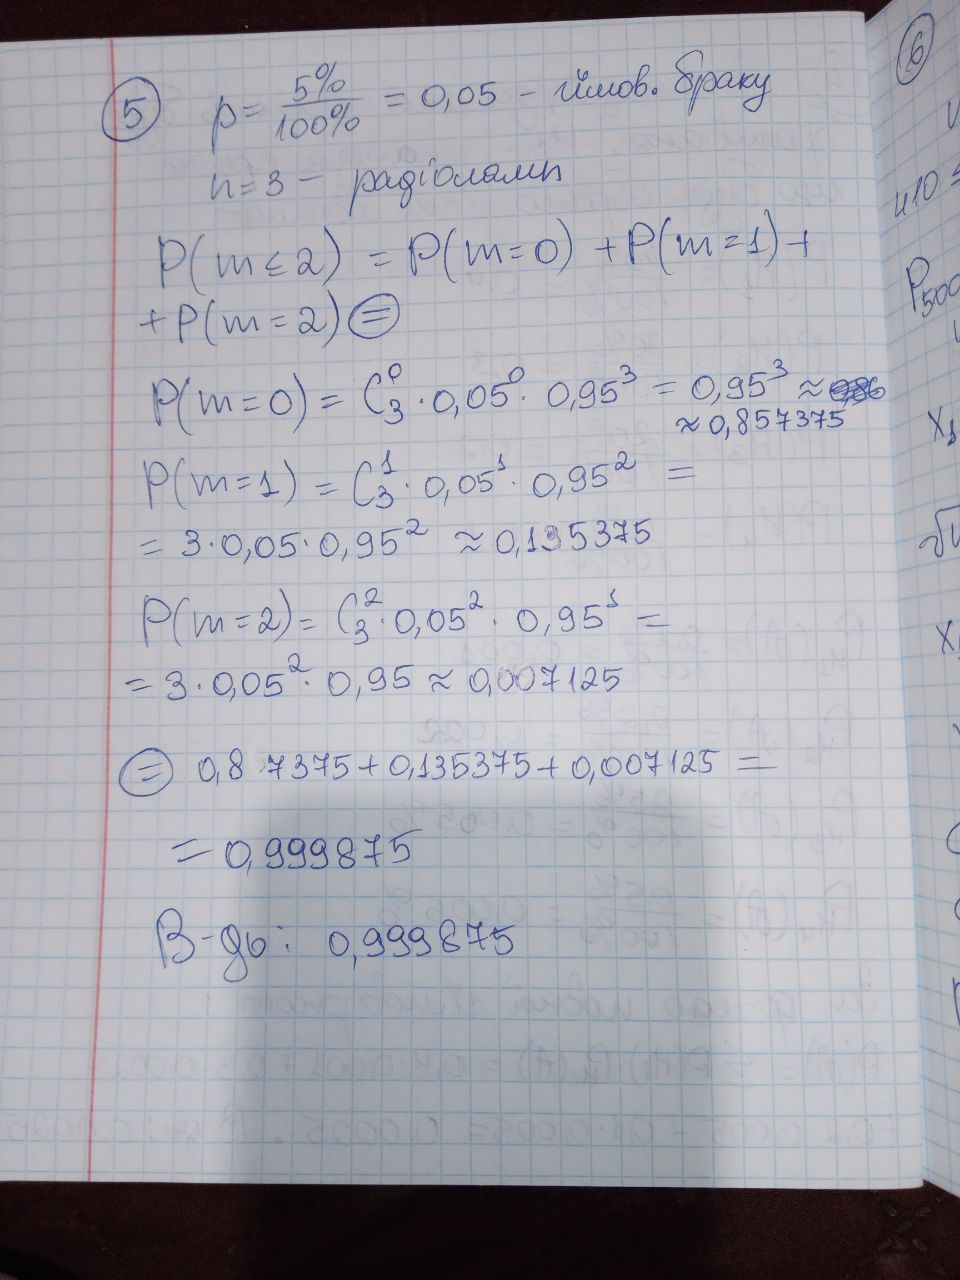 5 p = 5% / 100% = 0,05 - ймов. браку
n = 3 - радіолампи
P(m ≤ 2) = P(m=0) + P(m=1) +
+ P(m=2) =
P(m=0) = C₃⁰ · 0,05⁰ · 0,95³ = 0,95³ ≈
≈ 0,857375
P(m=1) = C₃¹ · 0,05¹ · 0,95² =
= 3 · 0,05 · 0,95² ≈ 0,135375
P(m=2) = C₃² · 0,05² · 0,95¹ =
= 3 · 0,05² · 0,95 ≈ 0,007125
= 0,8 7375 + 0,135375 + 0,007125 =
= 0,999875
В-дь: 0,999875
6
и10
P₅₀₀